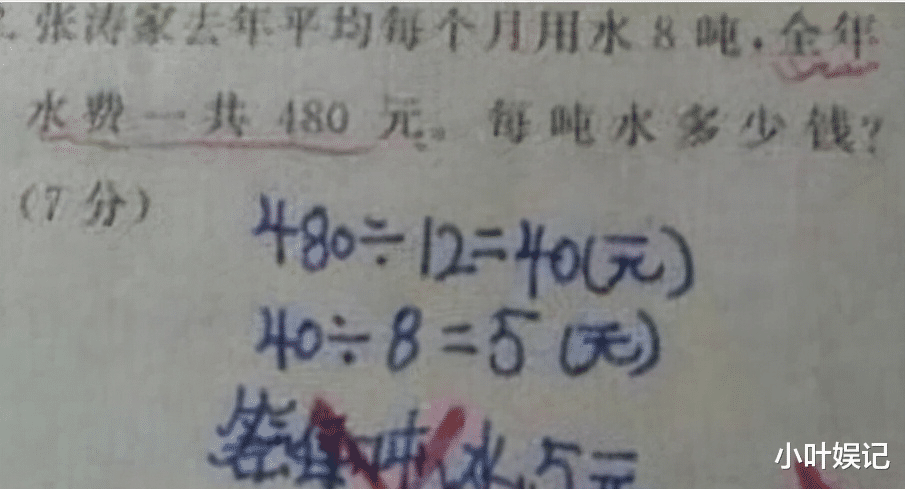 2. 张涛家去年平均每个月用水 8 吨，全年
水费一共 480 元。每吨水多少钱？
（7 分）
480÷12=40(元)
40÷8=5(元)
答:每吨水5元
小叶娱记